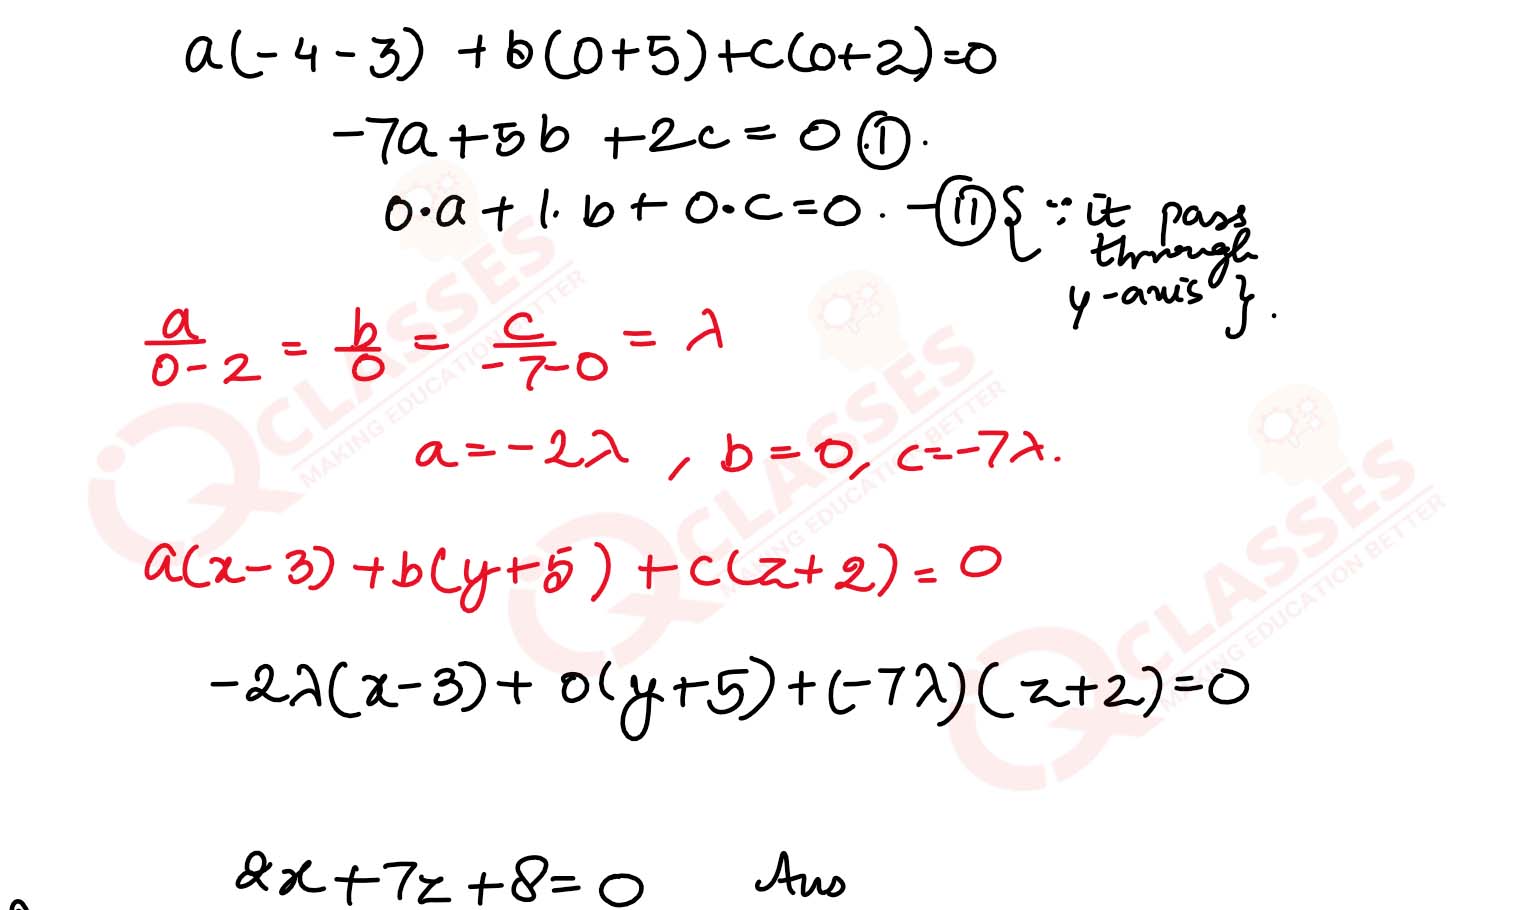 a(-4-3) + b(0+5)+c(0+2)=0
-7a+5b +2c = 0 ①.
0·a+1·b+0·c=0. -⑪{∵it pass
through
y-axis}.
a/0-2 = b/0 = c/-7-0 = λ
a=-2λ, b=0, c=-7λ.
a(x-3)+b(y+5)+c(z+2)=0
-2λ(x-3)+0(y+5)+(-7λ)(z+2)=0
2x+7z+8=0 Ans
IQ CLASSES
MAKING EDUCATION BETTER
IQ CLASSES
MAKING EDUCATION BETTER
IQ CLASSES
MAKING EDUCATION BETTER